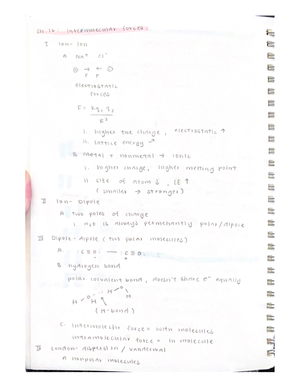 Ch. 12: Intermolecular Forces
I Ion-Ion
A. Na⁺ Cl⁻
⊕ → ← ⊖
F F
electrostatic
forces
i. higher the charge, electrostatic ↑
ii. lattice energy
B. metal + nonmetal → ionic
i. higher charge, higher melting point
ii. size of atom ↓, ↑
(smaller → stronger)
II Ion-Dipole
A. two poles of charge
i. is always permanently polar/dipole
III Dipole-dipole (two polar molecules)
A.
B. hydrogen bond
polar covalent bond, doesn't share e⁻ equally
H
O
H H
(H-bond)
C. intermolecular force = with molecules
intramolecular force = in molecule
IV London-dispersion / vanderwal
A. nonpolar molecules